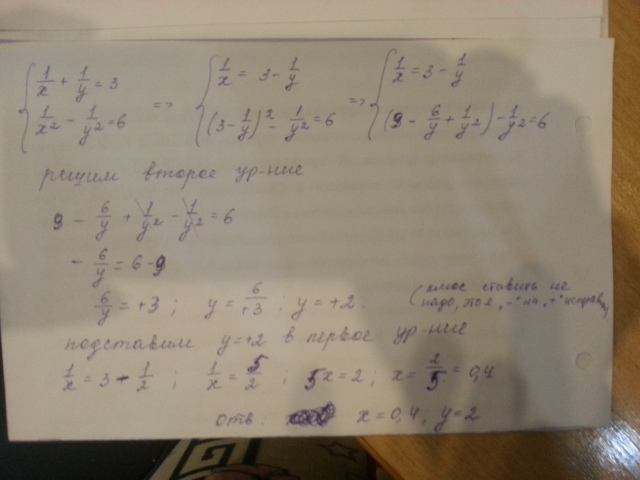 { 1/x + 1/y = 3  =>  { 1/x = 3 - 1/y  =>  { 1/x = 3 - 1/y
{ 1/x² - 1/y² = 6  { (3 - 1/y)² - 1/y² = 6  { (9 - 6/y + 1/y²) - 1/y² = 6
решим второе ур-ние
9 - 6/y + 1/y² - 1/y² = 6
- 6/y = 6-9
6/y = +3 ; y = 6/+3 ; y = +2. (плюс ставить не
надо, это я „-" на „+" исправ)
подставим y=+2 в первое ур-ние
1/x = 3 - 1/2 ; 1/x = 5/2 ; 5x = 2 ; x = 2/5 = 0,4
отв. x = 0,4, y = 2